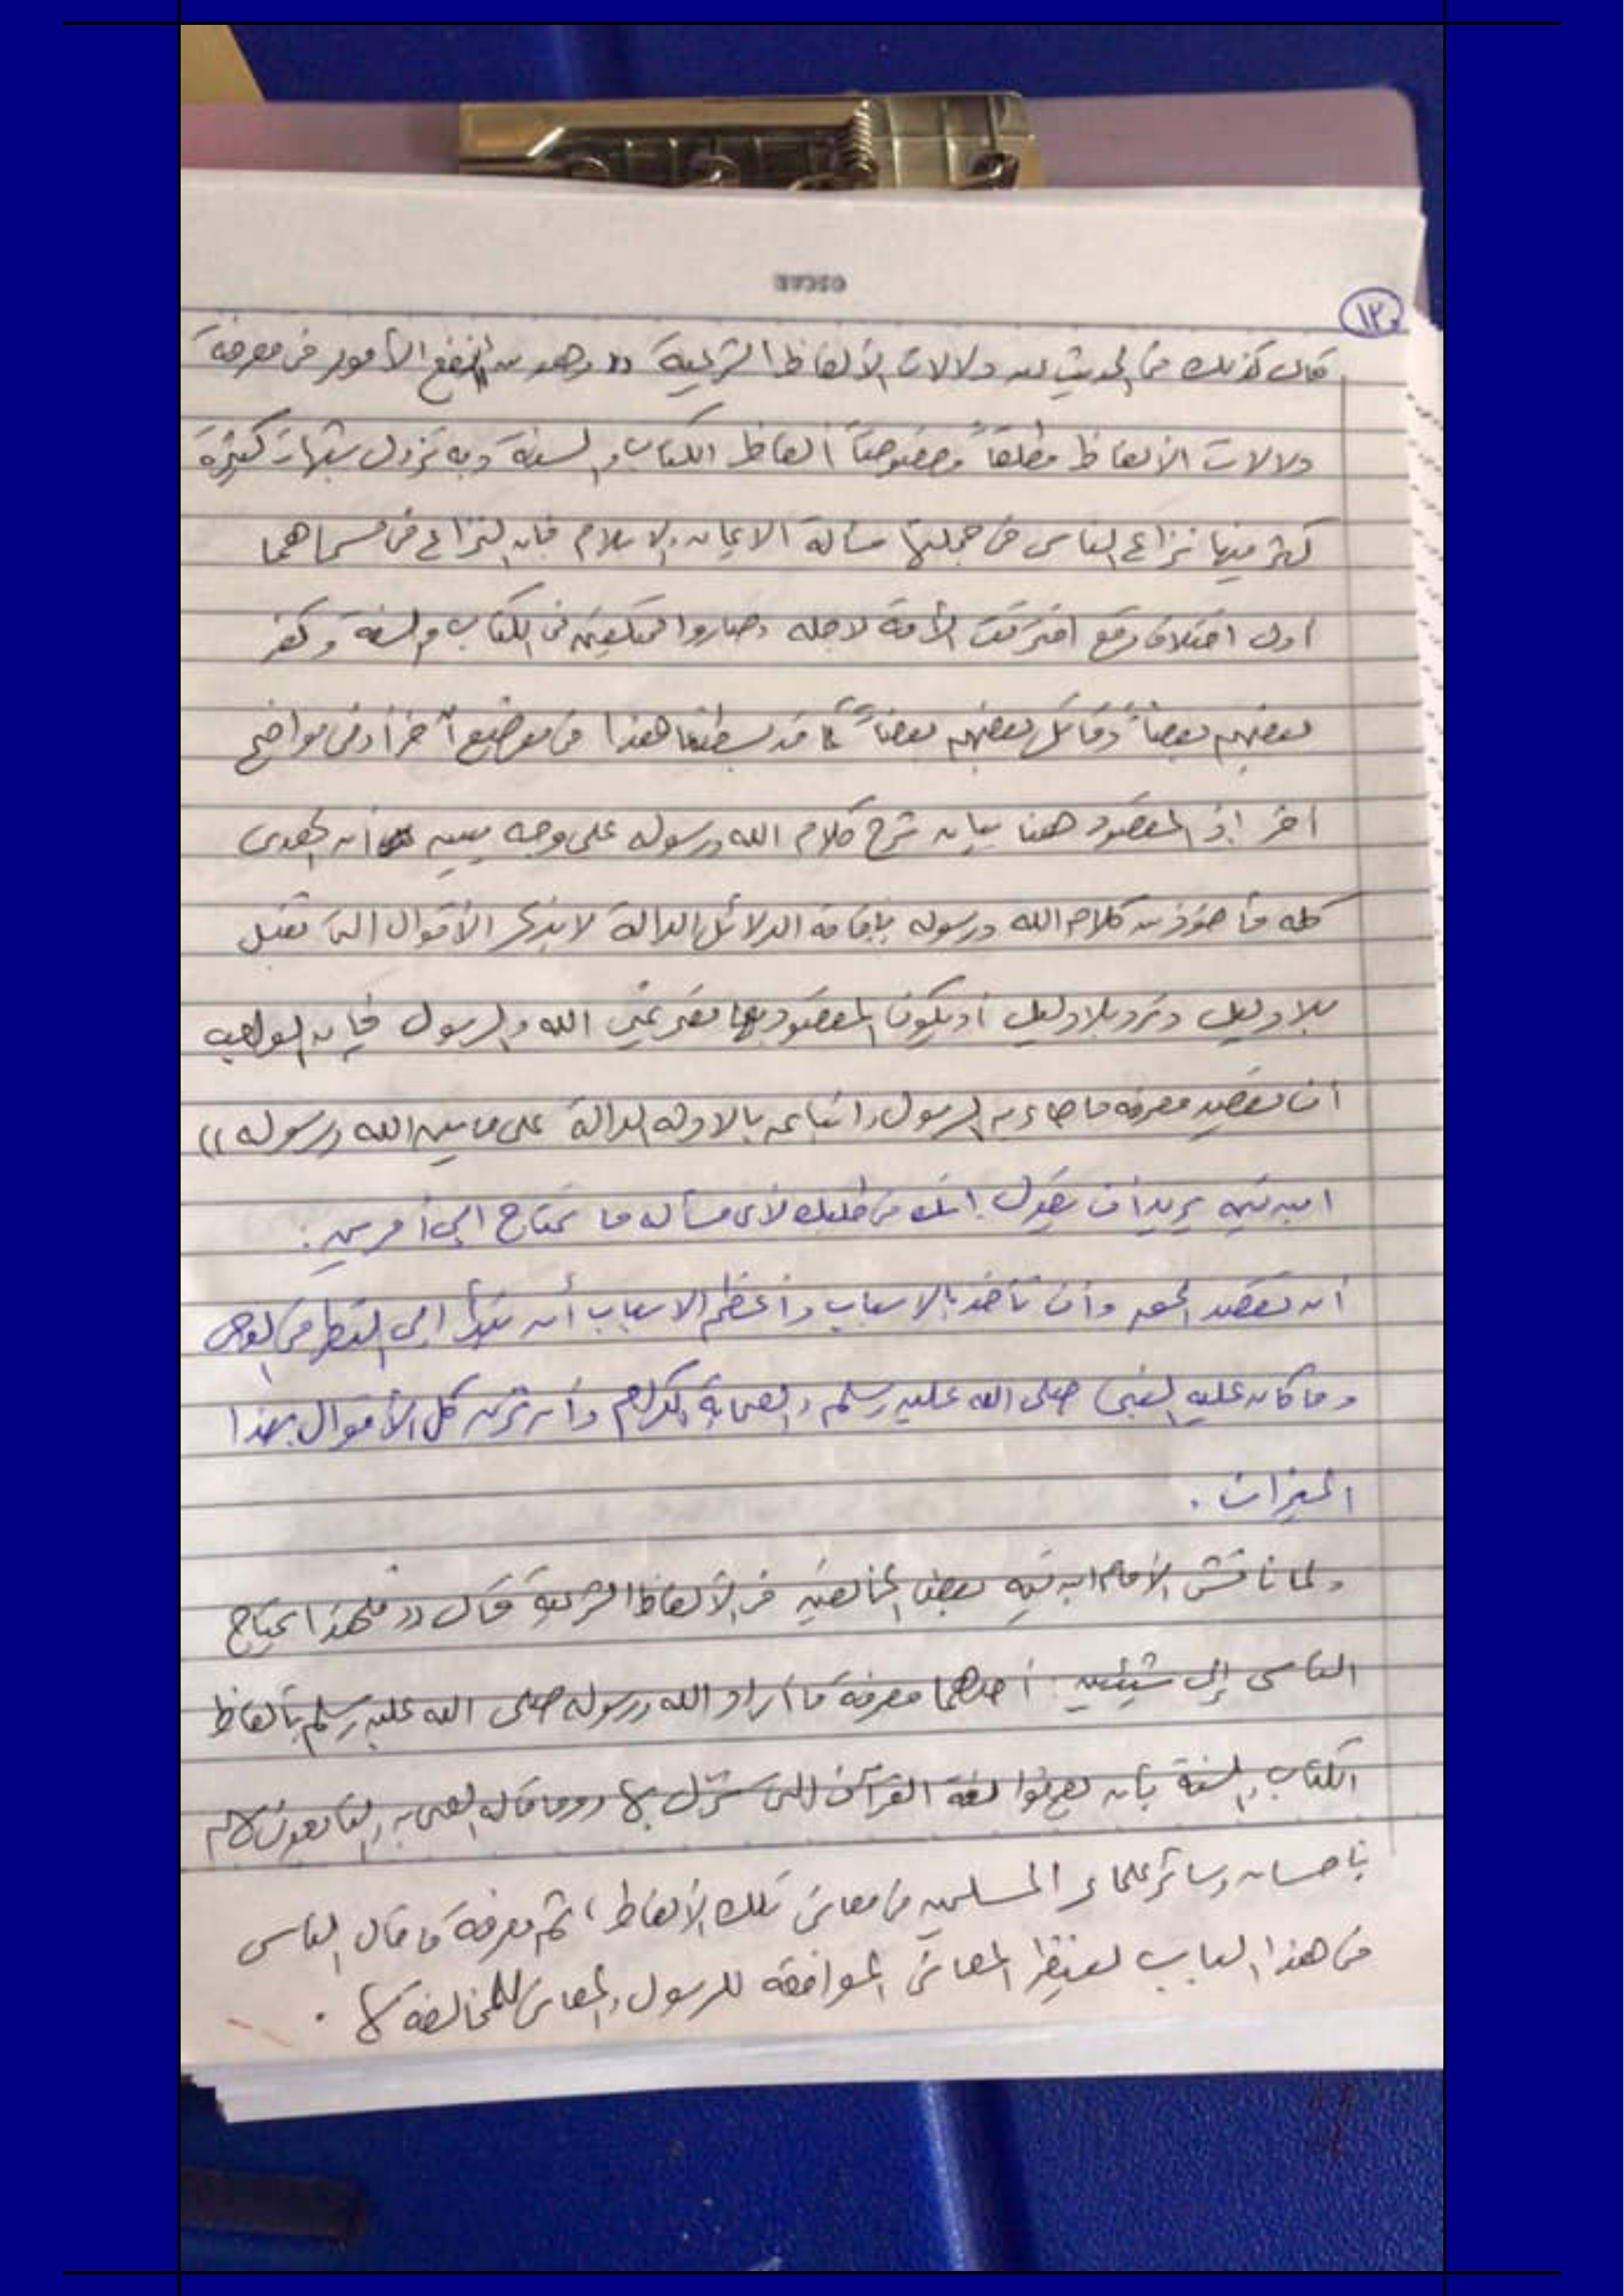 ١٢
قال كذلك في الحديث عن دلالات الألفاظ الشرعية (( وهو من أنفع الأمور في معرفة
دلالات الألفاظ مطلقاً وخصوصاً ألفاظ الكتاب والسنة وبه تزول شبهات كثيرة
كثر فيها نزاع الناس من جملتها مسألة الايمان والاسلام فإن النزاع في مسماهما
أول اختلاف وقع افترقت الأمة لاجله وصاروا مختلفين في الكتاب والسنة وكفر
بعضهم بعضاً وقاتل بعضهم بعضاً كما قد بسطنا هذا في موضع آخر أو في مواضع
اخر إذ المقصود هنا بيان شرح كلام الله ورسوله على وجه يبين أن الهدى
كله مأخوذ من كلام الله ورسوله بإقامة الدلائل الدالة لا بذكر الأقوال التي تقبل
بلا دليل وترد بلا دليل أو يكون المقصود بها نصر غير الله والرسول فإن الواجب
أن نقصد معرفة ما جاء به الرسول واتباعه بالادلة الدالة على ما بينه الله ورسوله ))
ابن تيمية يريد أن يقول إنك في طلبك لأي مسألة ما تحتاج إلى أمرين :
أن تقصد الحق وأن تأخذ بالاسباب وأعظم الاسباب أن تبدأ إلى النظر في الوحي
وما كان عليه النبي صلى الله عليه وسلم والصحابة الكرام وأن تزن كل الأقوال بهذا
الميزان .
ولما ناقش الأمام ابن تيمية بعض المخالفين في الألفاظ الشرعية قال (( فلهذا يحتاج
الناس إلى شيئين : أحدهما معرفة ما أراد الله ورسوله صلى الله عليه وسلم بألفاظ
الكتاب والسنة بأن يعرفوا لغة القرآن التي نزل بها وما قاله الصحابة والتابعون لهم
بإحسان وسائر علماء المسلمين في معاني تلك الألفاظ ، ثم معرفة ما قال الناس
في هذا الباب لينظر المعاني الموافقة للرسول والمعاني المخالفة لها .